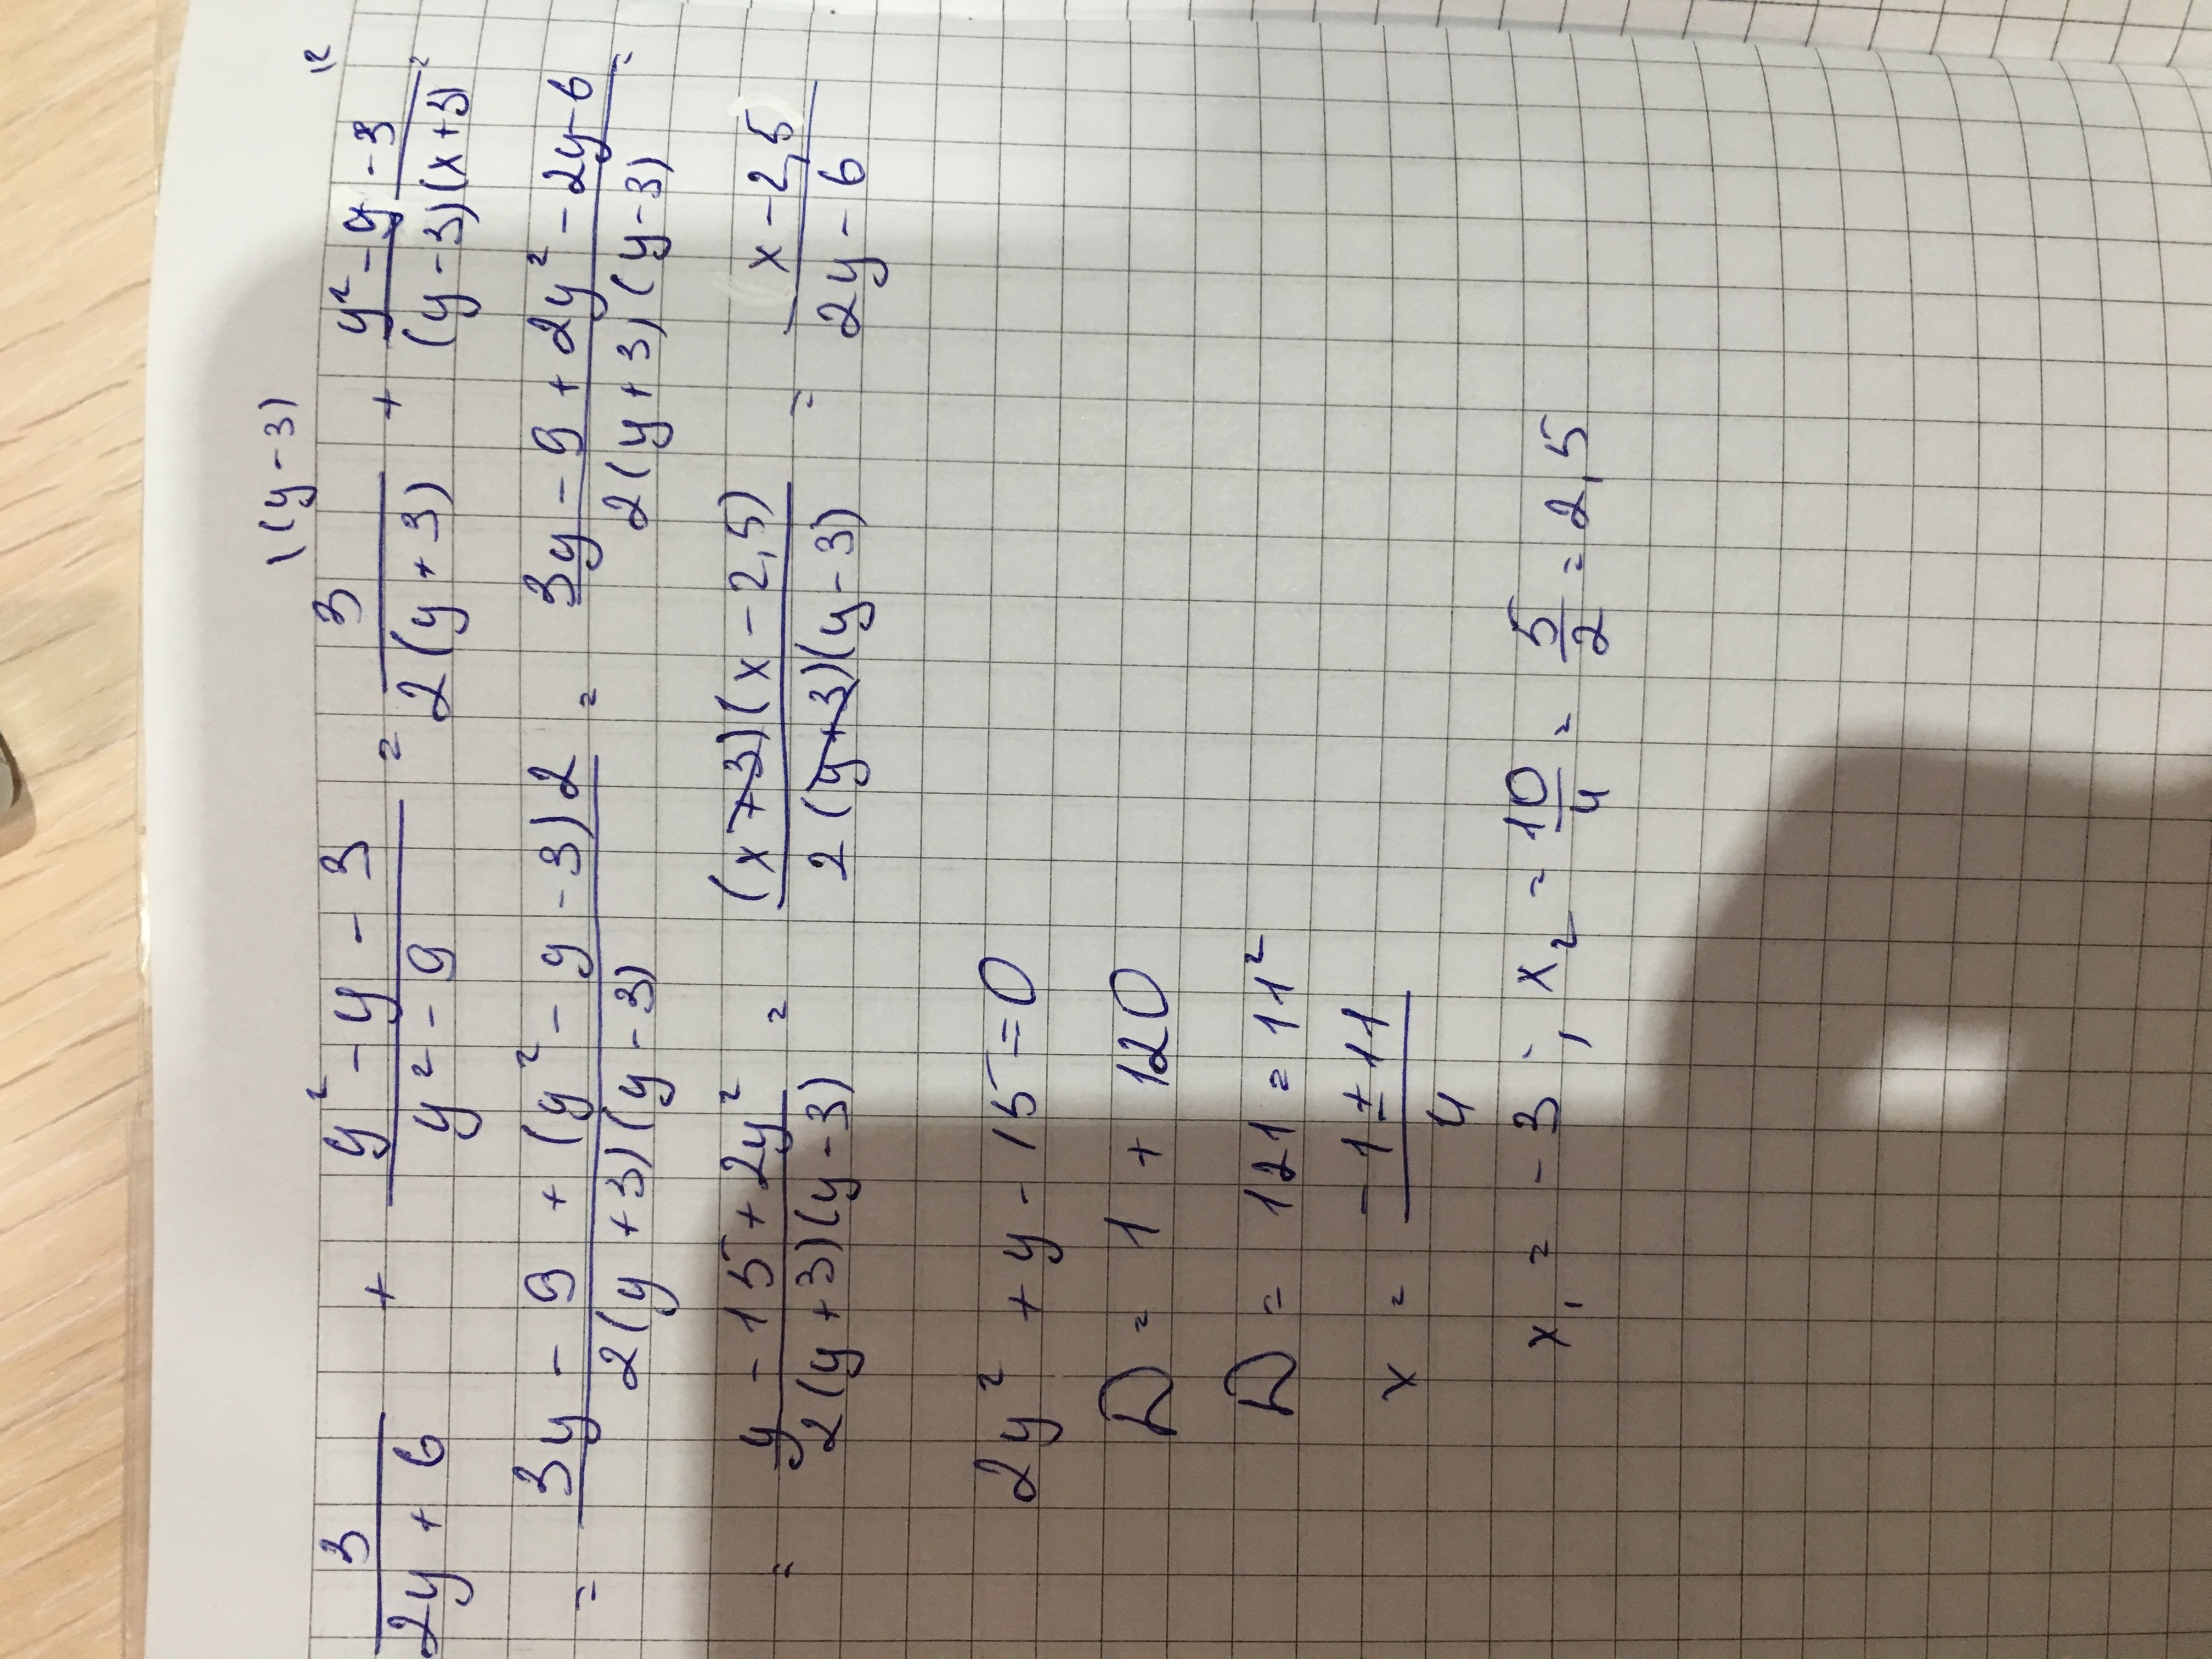 \(y-3) \2
3/(2y+6) + (y²-y-3)/(y²-9) = 3/(2(y+3)) + (y²-y-3)/((y-3)(x+3)) =
= (3y-9+(y²-y-3)2)/(2(y+3)(y-3)) = (3y-9+2y²-2y-6)/(2(y+3)(y-3)) =
= (y-15+2y²)/(2(y+3)(y-3)) = ((x+3)(x-2,5))/(2(y+3)(y-3)) = (x-2,5)/(2y-6)
2y²+y-15=0
D=1+120
D=121=11²
x=(-1±11)/4
x₁=-3; x₂=10/4=5/2=2,5